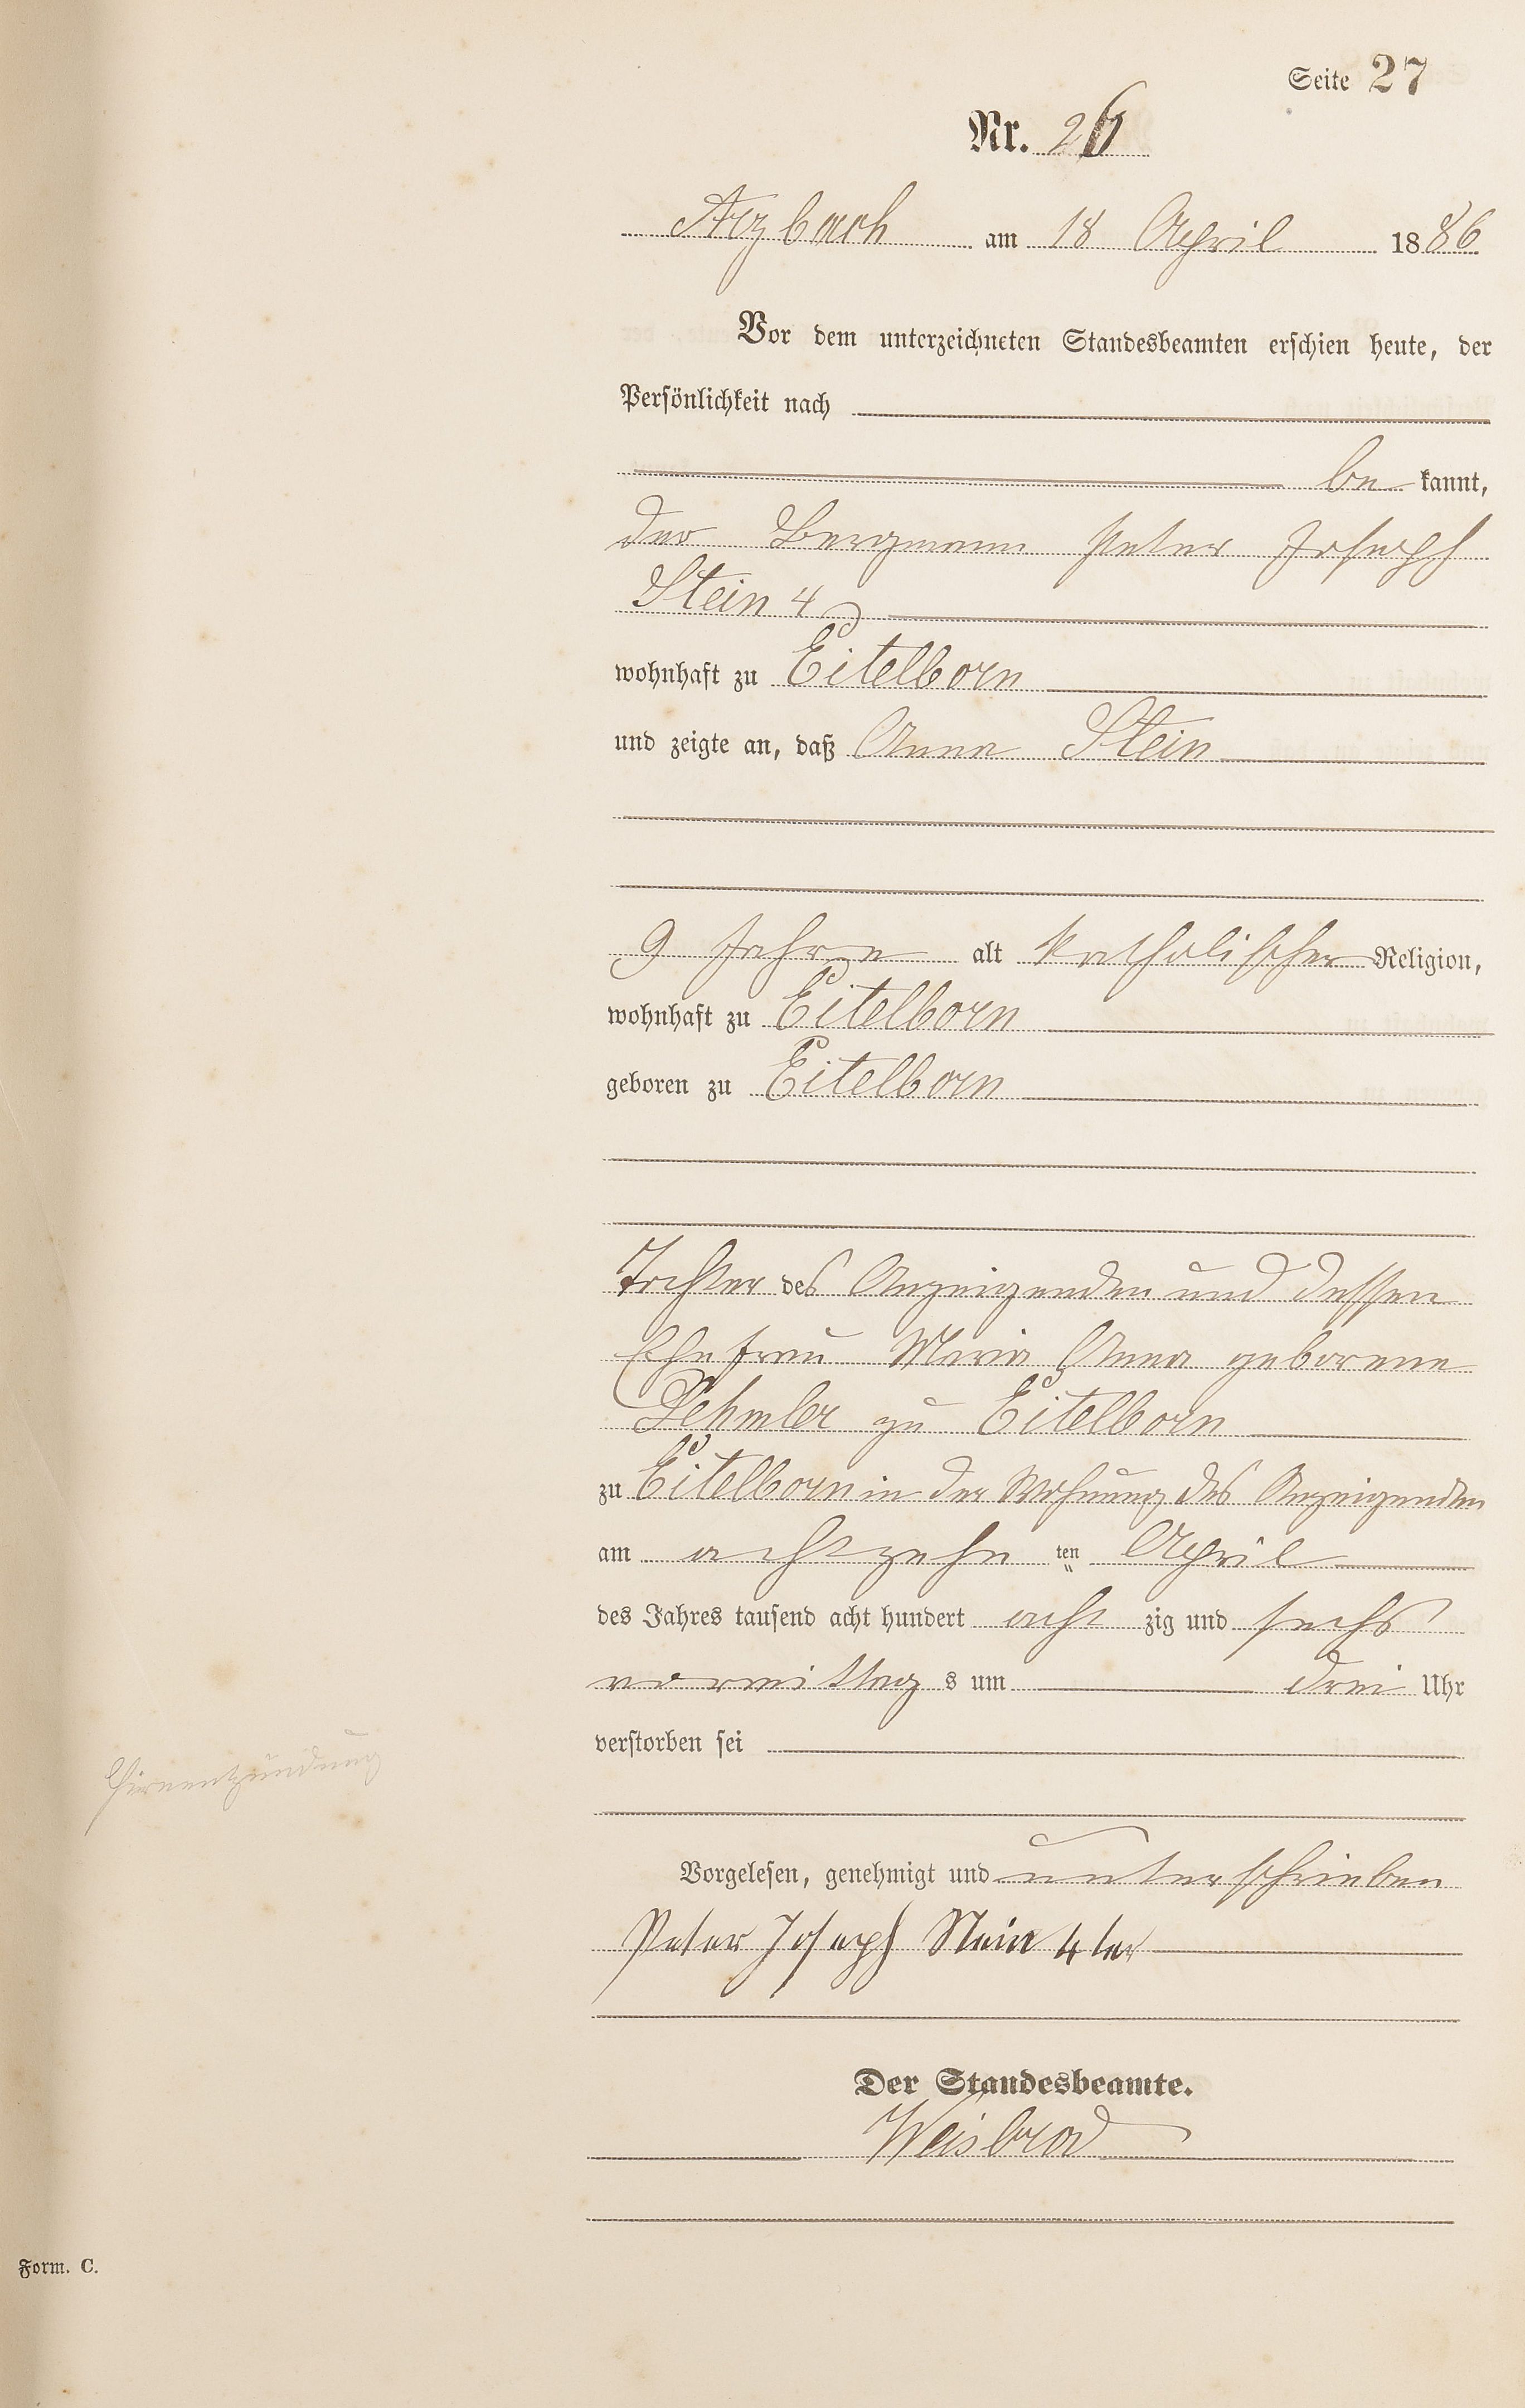 Seite 27
Nr. 26
Arzbach am 18 April 1886
Vor dem unterzeichneten Standesbeamten erschien heute, der
Persönlichkeit nach
be kannt,
der Bergmann Peter Joseph
Stein 4
wohnhaft zu Eitelborn
und zeigte an, daß Anna Stein
9 Jahre alt katholischer Religion,
wohnhaft zu Eitelborn
geboren zu Eitelborn
Tochter des Anzeigenden und dessen
Ehefrau Maria Anna geborene
Lehmler zu Eitelborn
zu Eitelborn in der Wohnung des Anzeigenden
am achtzehn ten April
des Jahres tausend acht hundert acht zig und sechs
vormittag s um drei Uhr
verstorben sei
Hirnentzündung
Vorgelesen, genehmigt und unterschrieben
Peter Joseph Stein 4ter
Der Standesbeamte.
Weisbrod
Form. C.